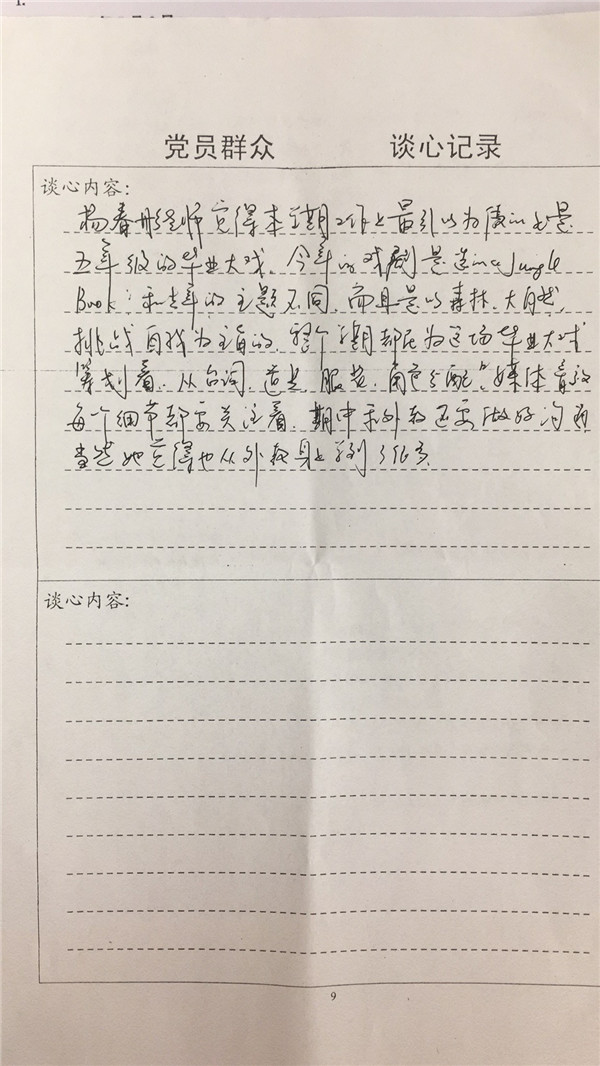 1.
党员群众 谈心记录
谈心内容:
杨春彤老师觉得本学期工作上最引以为傲的就是
五年级的毕业大戏。今年的戏剧是 Jungle
Book,和去年的主题不同,而且是以森林、大自然、
挑战自我为主旨的,整个学期都在为这场毕业大戏
筹划着,从台词、道具、服装、角色分配、媒体
每个细节都要关注着,期中和外教还要做好沟通
当然她觉得也从外教身上学到了很多。
谈心内容:
9